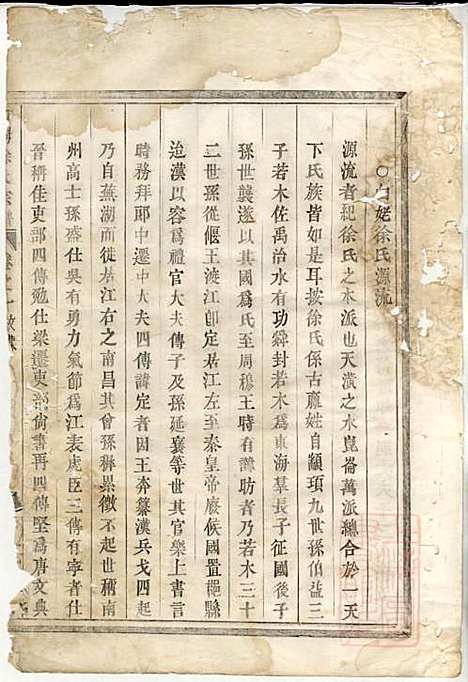 ○白姥徐氏源流
源流者紀徐氏之本派也天潢之水崑崙萬派總合於一天
下氏族皆如是耳按徐氏係古嬴姓自顓頊九世孫伯益三
子若木佐禹治水有功舜封若木為東海羣長子征國後子
孫世襲遂以國為氏至周穆王時有諱昉者乃若木三十
二世孫從偃王渡江即定居江左至秦皇帝廢侯國置郡縣
迨漢以容為禮官大夫傳子及孫延襄等世其官榮上書言
時務拜郎中遷中大夫四傳諱定者因王莽篡漢兵戈四起
乃自蕪湖而徙居江右之南昌其曾孫穉累徵不起世稱南
州高士孫盛仕吳有勇力氣節為江表虎臣三傳有寧者仕
晉稱佳吏部四傳勉仕梁遷吏部尚書再四傳堅為唐文典